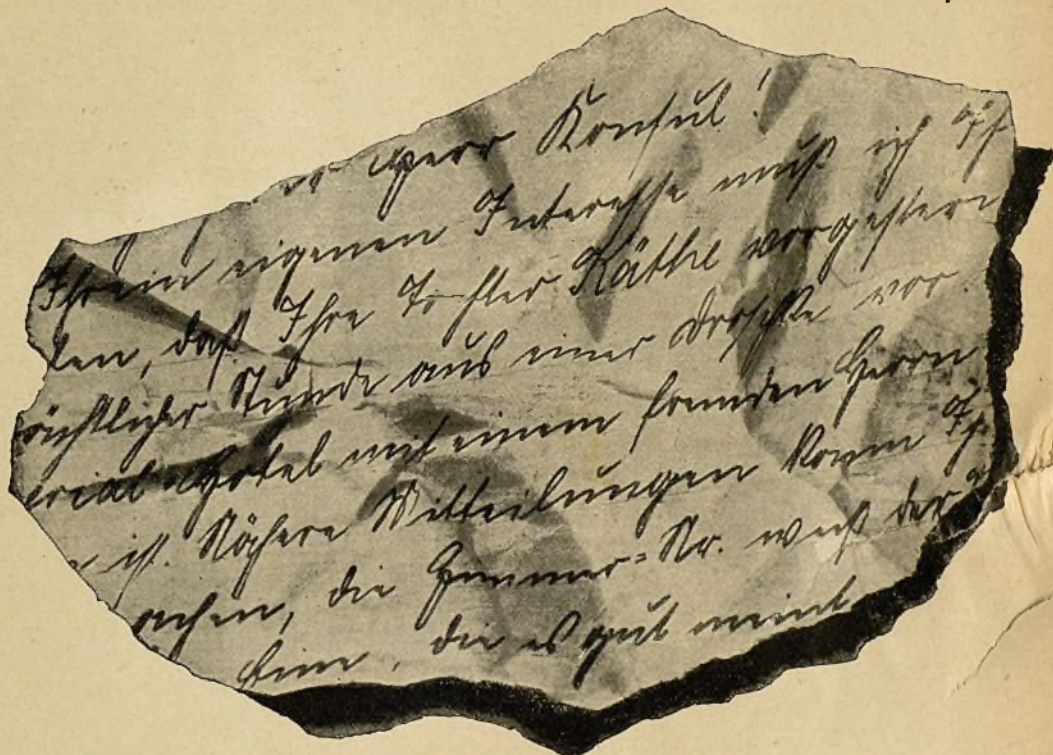 Herr Konsul!
Ihrem eigenen Interesse muß ich Ih
len, daß Ihre Tochter Käthe vorgestern
ächtlicher Stunde aus einer Droschke vor
erial Hotel mit einem fremden Herrn
ist. Nähere Mitteilungen kann Ih
achen, die Zimmer=Nr. weiß der
Eine, die es gut meint